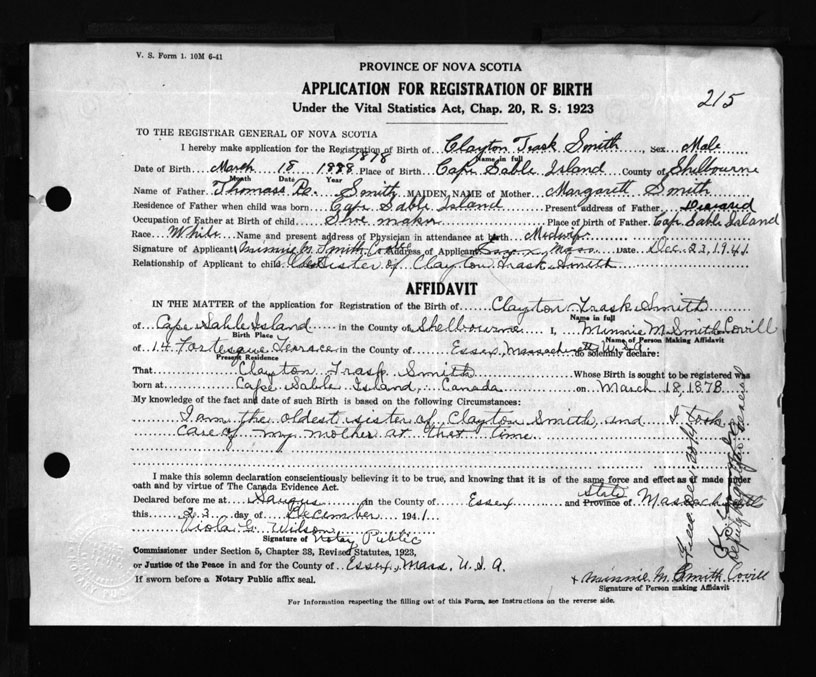 V. S. Form 1. 10M 6-41
PROVINCE OF NOVA SCOTIA
APPLICATION FOR REGISTRATION OF BIRTH
Under the Vital Statistics Act, Chap. 20, R. S. 1923
215
TO THE REGISTRAR GENERAL OF NOVA SCOTIA
I hereby make application for the Registration of Birth of Clayton Trask Smith Sex Male
Name in full
1878
Date of Birth March 18 1888 Place of Birth Cape Sable Island County of Shelbourne
Month Date Year
Name of Father Thomas Smith MAIDEN NAME of Mother Margarett Smith
Residence of Father when child was born Cape Sable Island Present address of Father
Occupation of Father at Birth of child Shoe maker Place of birth of Father Cape Sable Island
Race White Name and present address of Physician in attendance at birth Midwife
Signature of Applicant Minnie M. Smith Address of Applicant Mass Date Dec. 23, 1941
Relationship of Applicant to child Sister of Clayton Trask Smith
AFFIDAVIT
IN THE MATTER of the application for Registration of the Birth of Clayton Trask Smith
Name in full
of Cape Sable Island in the County of Shelbourne I, Minnie M. Smith Covill
Birth Place Name of Person Making Affidavit
of 14 Fortesque Terrace in the County of Essex, Massachusetts U.S.A. do solemnly declare:
Present Residence
That Clayton Trasp Smith Whose Birth is sought to be registered was
born at Cape Sable Island, Canada on March 18, 1878
My knowledge of the fact and date of such Birth is based on the following Circumstances:
I am the oldest sister of Clayton Smith, and I took
care of my mother at that time.
I make this solemn declaration conscientiously believing it to be true, and knowing that it is of the same force and effect as if made under
oath and by virtue of The Canada Evidence Act.
state
Declared before me at Saugus in the County of Essex and Province of Massachusetts
this 23 day of December 1941
Viola G. Wilson
Signature of Notary Public
Commissioner under Section 5, Chapter 38, Revised Statutes, 1923,
or Justice of the Peace in and for the County of Essex, Mass, U.S.A.
If sworn before a Notary Public affix seal.
x Minnie M. Smith Covill
Signature of Person making Affidavit
For Information respecting the filling out of this Form, see Instructions on the reverse side.